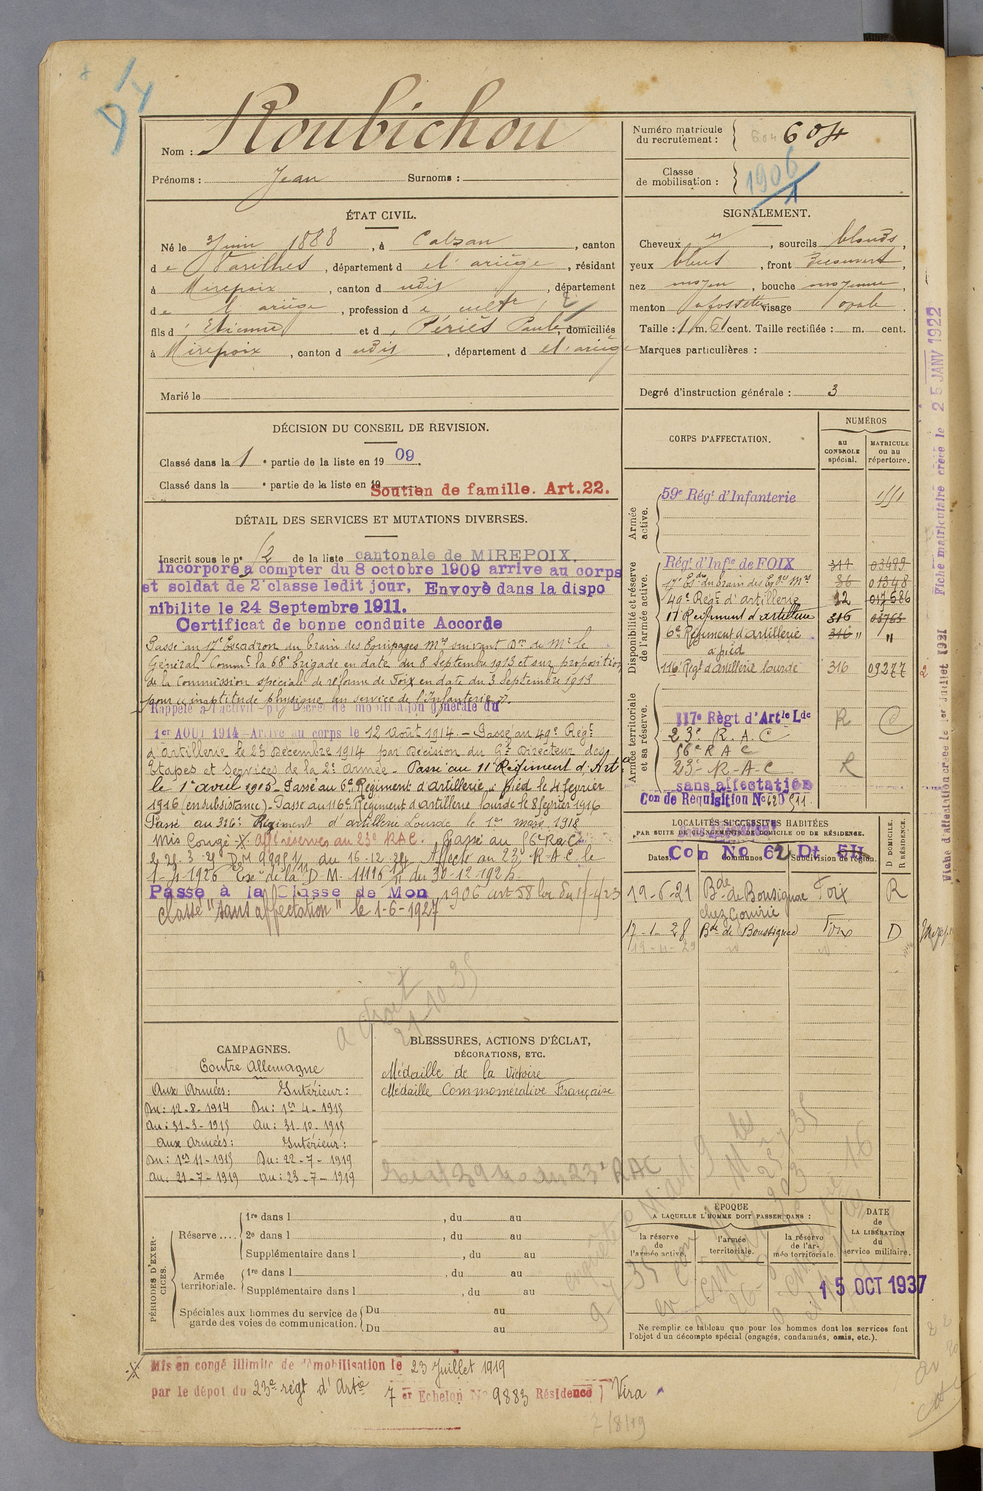 Roubichou
Nom :
Prénoms : Jean Surnoms :
Numéro matricule du recrutement : 604
Classe de mobilisation : 1906
ÉTAT CIVIL.
Né le Juin 1888, à Calzan, canton
de Varilhes, département d el'ariège, résidant
à Mirepoix, canton d udit, département
de l'ariège, profession d
fils d' Etienne et d Périès Paule, domiciliés
à Mirepoix, canton d udit, département d el'ariège
Marié le
SIGNALEMENT.
Cheveux et, sourcils blonds,
yeux bleus, front Découvert,
nez moyen, bouche moyenne,
menton à fossette visage ovale.
Taille : 1 m. 61 cent. Taille rectifiée : m. cent.
Marques particulières :
Degré d'instruction générale : 3
DÉCISION DU CONSEIL DE REVISION.
Classé dans la 1e partie de la liste en 1909.
Classé dans la e partie de la liste en 19
Soutien de famille. Art.22.
DÉTAIL DES SERVICES ET MUTATIONS DIVERSES.
Inscrit sous le n° 12 de la liste cantonale de MIREPOIX.
Incorporé à compter du 8 octobre 1909 arrivé au corps
et soldat de 2e classe ledit jour, Envoyé dans la dispo
nibilité le 24 Septembre 1911.
Certificat de bonne conduite Accordé
Passé au 17e Escadron du train des Equipages Mres suivant Don de Mr le
Général Commt la 68e brigade en date du 8 septembre 1913 et sur proposition
de la Commission spéciale de réforme de Foix en date du 3 septembre 1913
pour inaptitude physique au service de l'Infanterie
Rappelé à l'activité par Décret de mobilisation générale du
1er AOUT 1914 Arrivé au corps le 12 Août 1914 - Passé au 49e Régt
d'Artillerie le 23 Décembre 1914 par Décision du Gl Directeur des
Etapes et Services de la 2e Armée. Passé au 11e Régiment d'Artie
le 1er avril 1915 - Passé au 6e Régiment d'Artillerie à pied le 4 février
1916 (en subsistance) - Passé au 116e Régiment d'artillerie lourde le 8 février 1916
Passé au 316e Régiment d'artillerie Lourde le 1er mars 1918
Mis Congé X. aff réserves au 23e RAC. Passé au 56e RAC
le 21-3-21 D.M 9998 1/11 du 16-12-24 Affecté au 23e R.A.C le
1-11-1926 Exon de la D.M. 11116 1/11 du 30-12-1924.
Passé à la Classe de Mon 1906 art 58 loi du 1/4/23
classé "sans affectation" le 1-6-1927
CORPS D'AFFECTATION.
NUMÉROS
au CONTROLE spécial.
MATRICULE ou au répertoire.
Armée active.
59e Régt d'Infanterie
Disponibilité et réserve de l'armée active.
Régt d'Infie de FOIX
17e Edon du train des Eqges Mres 86 01348
49e Régt d'artillerie 22 017686
11e Régiment d'artillerie 316 03765
6e Régiment d'artillerie à pied 316 "
116e Régt d'Artillerie lourde 316 09377
Armée territoriale et sa réserve.
117e Règt d'Artie Lde R
23e R.A.C
56e R A C
23e R-A-C R
sans affectation
Con de Réquisition No
LOCALITÉS SUCCESSIVES HABITÉES
PAR SUITE DE CHANGEMENTS DE DOMICILE OU DE RÉSIDENCE.
Dates. Communes. Subdivision de région. D DOMICILE. R RÉSIDENCE.
Con No 62 Dt 511
19-6-21 Bde de Bousignac Foix R
chez Gouirie
17-1-28 Bde de Boussignac Foix D
CAMPAGNES.
Contre Allemagne
Aux Armées : Intérieur :
Du : 12-8-1914 Du : 1er 4-1915
Au : 31-3-1915 Au : 31-10-1915
Aux Armées : Intérieur :
Du : 1er 11-1915 Du : 22-7-1919
Au : 21-7-1919 Au : 23-7-1919
BLESSURES, ACTIONS D'ÉCLAT,
DÉCORATIONS, ETC.
Médaille de la Victoire
Médaille Commémorative Française
PÉRIODES D'EXERCICES.
Réserve....
1re dans l , du au
2e dans l , du au
Supplémentaire dans l , du au
Armée territoriale.
1re dans l , du au
Supplémentaire dans l , du au
Spéciales aux hommes du service de garde des voies de communication.
Du au
Du au
ÉPOQUE
A LAQUELLE L'HOMME DOIT PASSER DANS :
la réserve de l'armée active.
l'armée territoriale.
la réserve de l'armée territoriale.
DATE
DE
LA LIBÉRATION
du
service militaire.
15 OCT 1937
Ne remplir ce tableau que pour les hommes dont les services font
l'objet d'un décompte spécial (engagés, condamnés, omis, etc.).
X Mis en congé illimité de démobilisation le 23 Juillet 1919
par le dépôt du 23e régt d'Artie 7er Echelon No 9883 Résidence Vira
7/8/19
Fiche d'affectation créée le 1er Juillet 1921
Fiche matriculaire créée le 25 JANV 1922